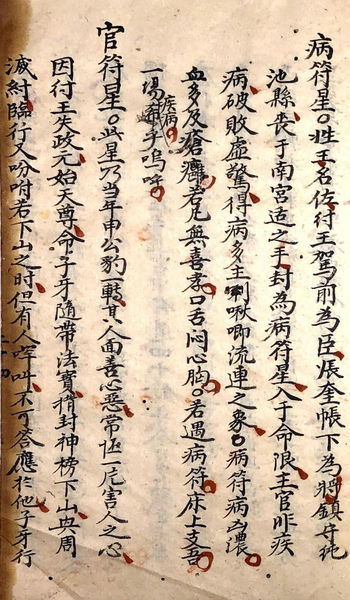 病符星。姓王名佐紂王駕前為臣張奎帳下為將鎮守純
池縣喪于南宮适之手封為病符星入于命限主官非疾
病破敗虛驚得病多主啾唧流連之象。病符病为濃
血多及瘡癰若凡無喜孝口舌闷心胸。若遇病符床上支吾
一場疾病。通手嗚呼。
官符星。此星乃当年申公豹一轉其人面善心惡常怀一危害人之心
因紂王失政元始天尊命子牙隨帶法寶稍封神榜下山興周
滅紂臨行又吩咐若下山之時但有人哮叫不可答應於他子牙行